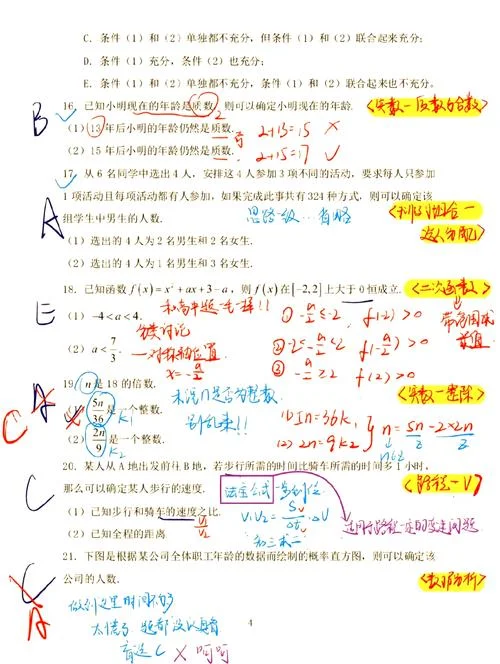 C. 条件（1）和（2）单独都不充分，但条件（1）和（2）联合起来充分；
D. 条件（1）充分，条件（2）也充分；
E. 条件（1）和（2）单独都不充分，条件（1）和（2）联合起来也不充分。
B
16. 已知小明现在的年龄是质数，则可以确定小明现在的年龄.
2
（1）13年后小明的年龄仍然是质数. 2+13=15 ×
（2）15年后小明的年龄仍然是质数. 2+15=17 ✓
17. 从6名同学中选出4人，安排这4人参加3项不同的活动，要求每人只参加
1项活动且每项活动都有人参加，如果完成此事共有324种方式，则可以确定该
组学生中男生的人数.
A
思路一级..
（1）选出的4人为2名男生和2名女生.
（2）选出的4人为1名男生和3名女生.
18. 已知函数 f(x)=x²+ax+3−a，则 f(x) 在[−2,2]上大于0恒成立. <二次函数>
E
（1）−4<a<4. 和高中题一毛一样!! ① −a/2≤−2 f(-2)>0
分类讨论
（2）a<7/3. 一对称轴位置 ② −2≤−a/2≤2 f(−a/2)>0
x=−a/2 ③ −a/2≥2 f(2)>0
19. n是18的倍数.
C A
（1）5n/36是一个整数. K1
别乱来!! (1) 5n=36k1
（2）2n/9是一个整数. K2 (2) 2n=9k2
n=5n−2×2n
20. 某人从A地出发前往B地，若步行所需的时间比骑车所需的时间多1小时，
那么可以确定某人步行的速度. 法宝公式 <路程—V>
C
（1）已知步行和骑车的速度之比. V1/V2
V1V2=S/Δt·ΔV
（2）已知全程的距离 知三求一
21. 下图是根据某公司全体职工年龄的数据而绘制的概率直方图，则可以确定该
公司的人数. <数据分析>
C
A
做到这里时间不够
4
盲选C × 呵呵